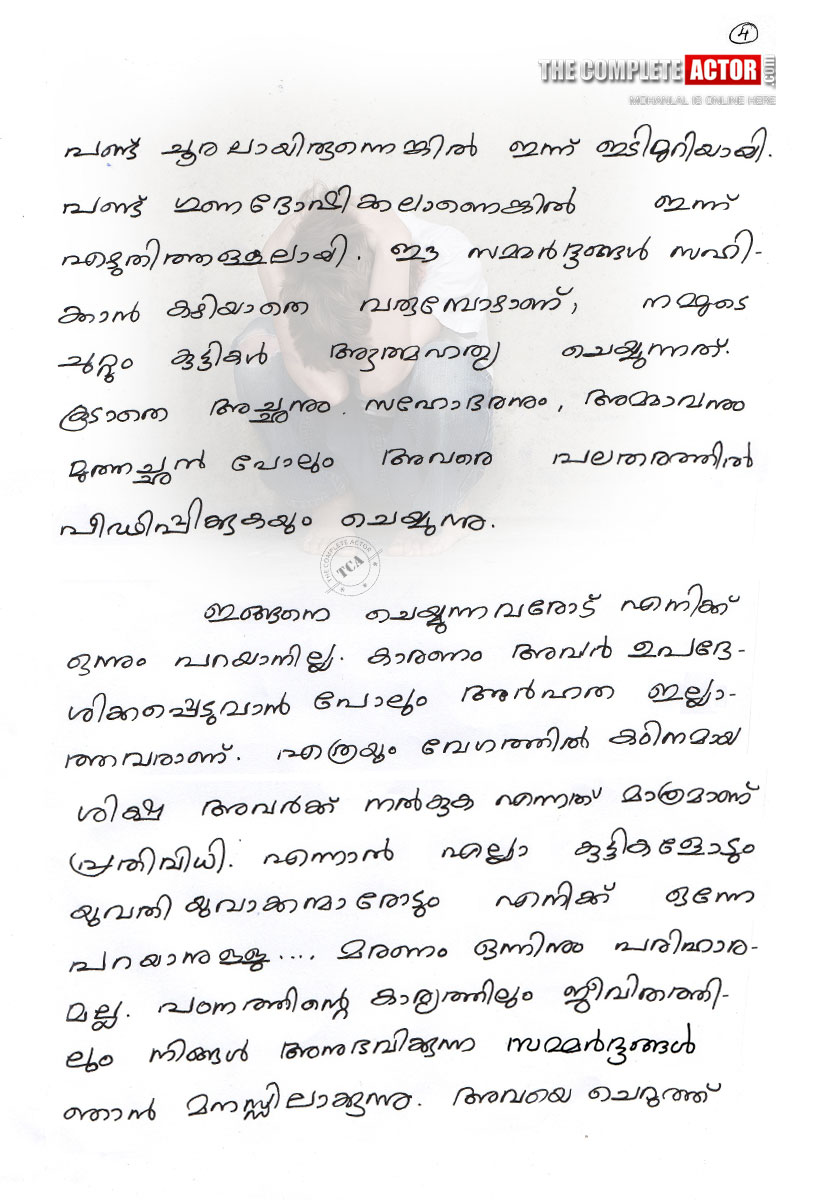 4
THE COMPLETE ACTOR .COM
MOHANLAL IS ONLINE HERE
പണ്ട് ചൂരലായിരുന്നെങ്കിൽ ഇന്ന് ഇടിമുറിയായി.
പണ്ട് ഗുണദോഷിക്കലാണെങ്കിൽ ഇന്ന്
എഴുതിത്തള്ളലായി. ഈ സമ്മർദ്ദങ്ങൾ സഹി-
ക്കാൻ കഴിയാതെ വരുമ്പോഴാണ്, നമ്മുടെ
ചുറ്റും കുട്ടികൾ ആത്മഹത്യ ചെയ്യുന്നത്.
കൂടാതെ അച്ഛനും. സഹോദരനും, അമ്മാവനും
മുത്തച്ഛൻ പോലും അവരെ പലതരത്തിൽ
പീഢിപ്പിക്കുകയും ചെയ്യുന്നു.
THE COMPLETE ACTOR
TCA
ഇങ്ങനെ ചെയ്യുന്നവരോട് എനിക്ക്
ഒന്നും പറയാനില്ല. കാരണം അവർ ഉപദേ-
ശിക്കപ്പെടുവാൻ പോലും അർഹത ഇല്ലാ-
ത്തവരാണ്. എത്രയും വേഗത്തിൽ കഠിനമായ
ശിക്ഷ അവർക്ക് നൽകുക എന്നത് മാത്രമാണ്
പ്രതിവിധി. എന്നാൽ എല്ലാ കുട്ടികളോടും
യുവതി യുവാക്കന്മാരോടും എനിക്ക് ഒന്നേ
പറയാനുള്ളൂ.... മരണം ഒന്നിനും പരിഹാര-
മല്ല. പഠനത്തിന്റെ കാര്യത്തിലും ജീവിതത്തി-
ലും നിങ്ങൾ അനുഭവിക്കുന്ന സമ്മർദ്ദങ്ങൾ
ഞാൻ മനസ്സിലാക്കുന്നു. അവയെ ചെറുത്ത്